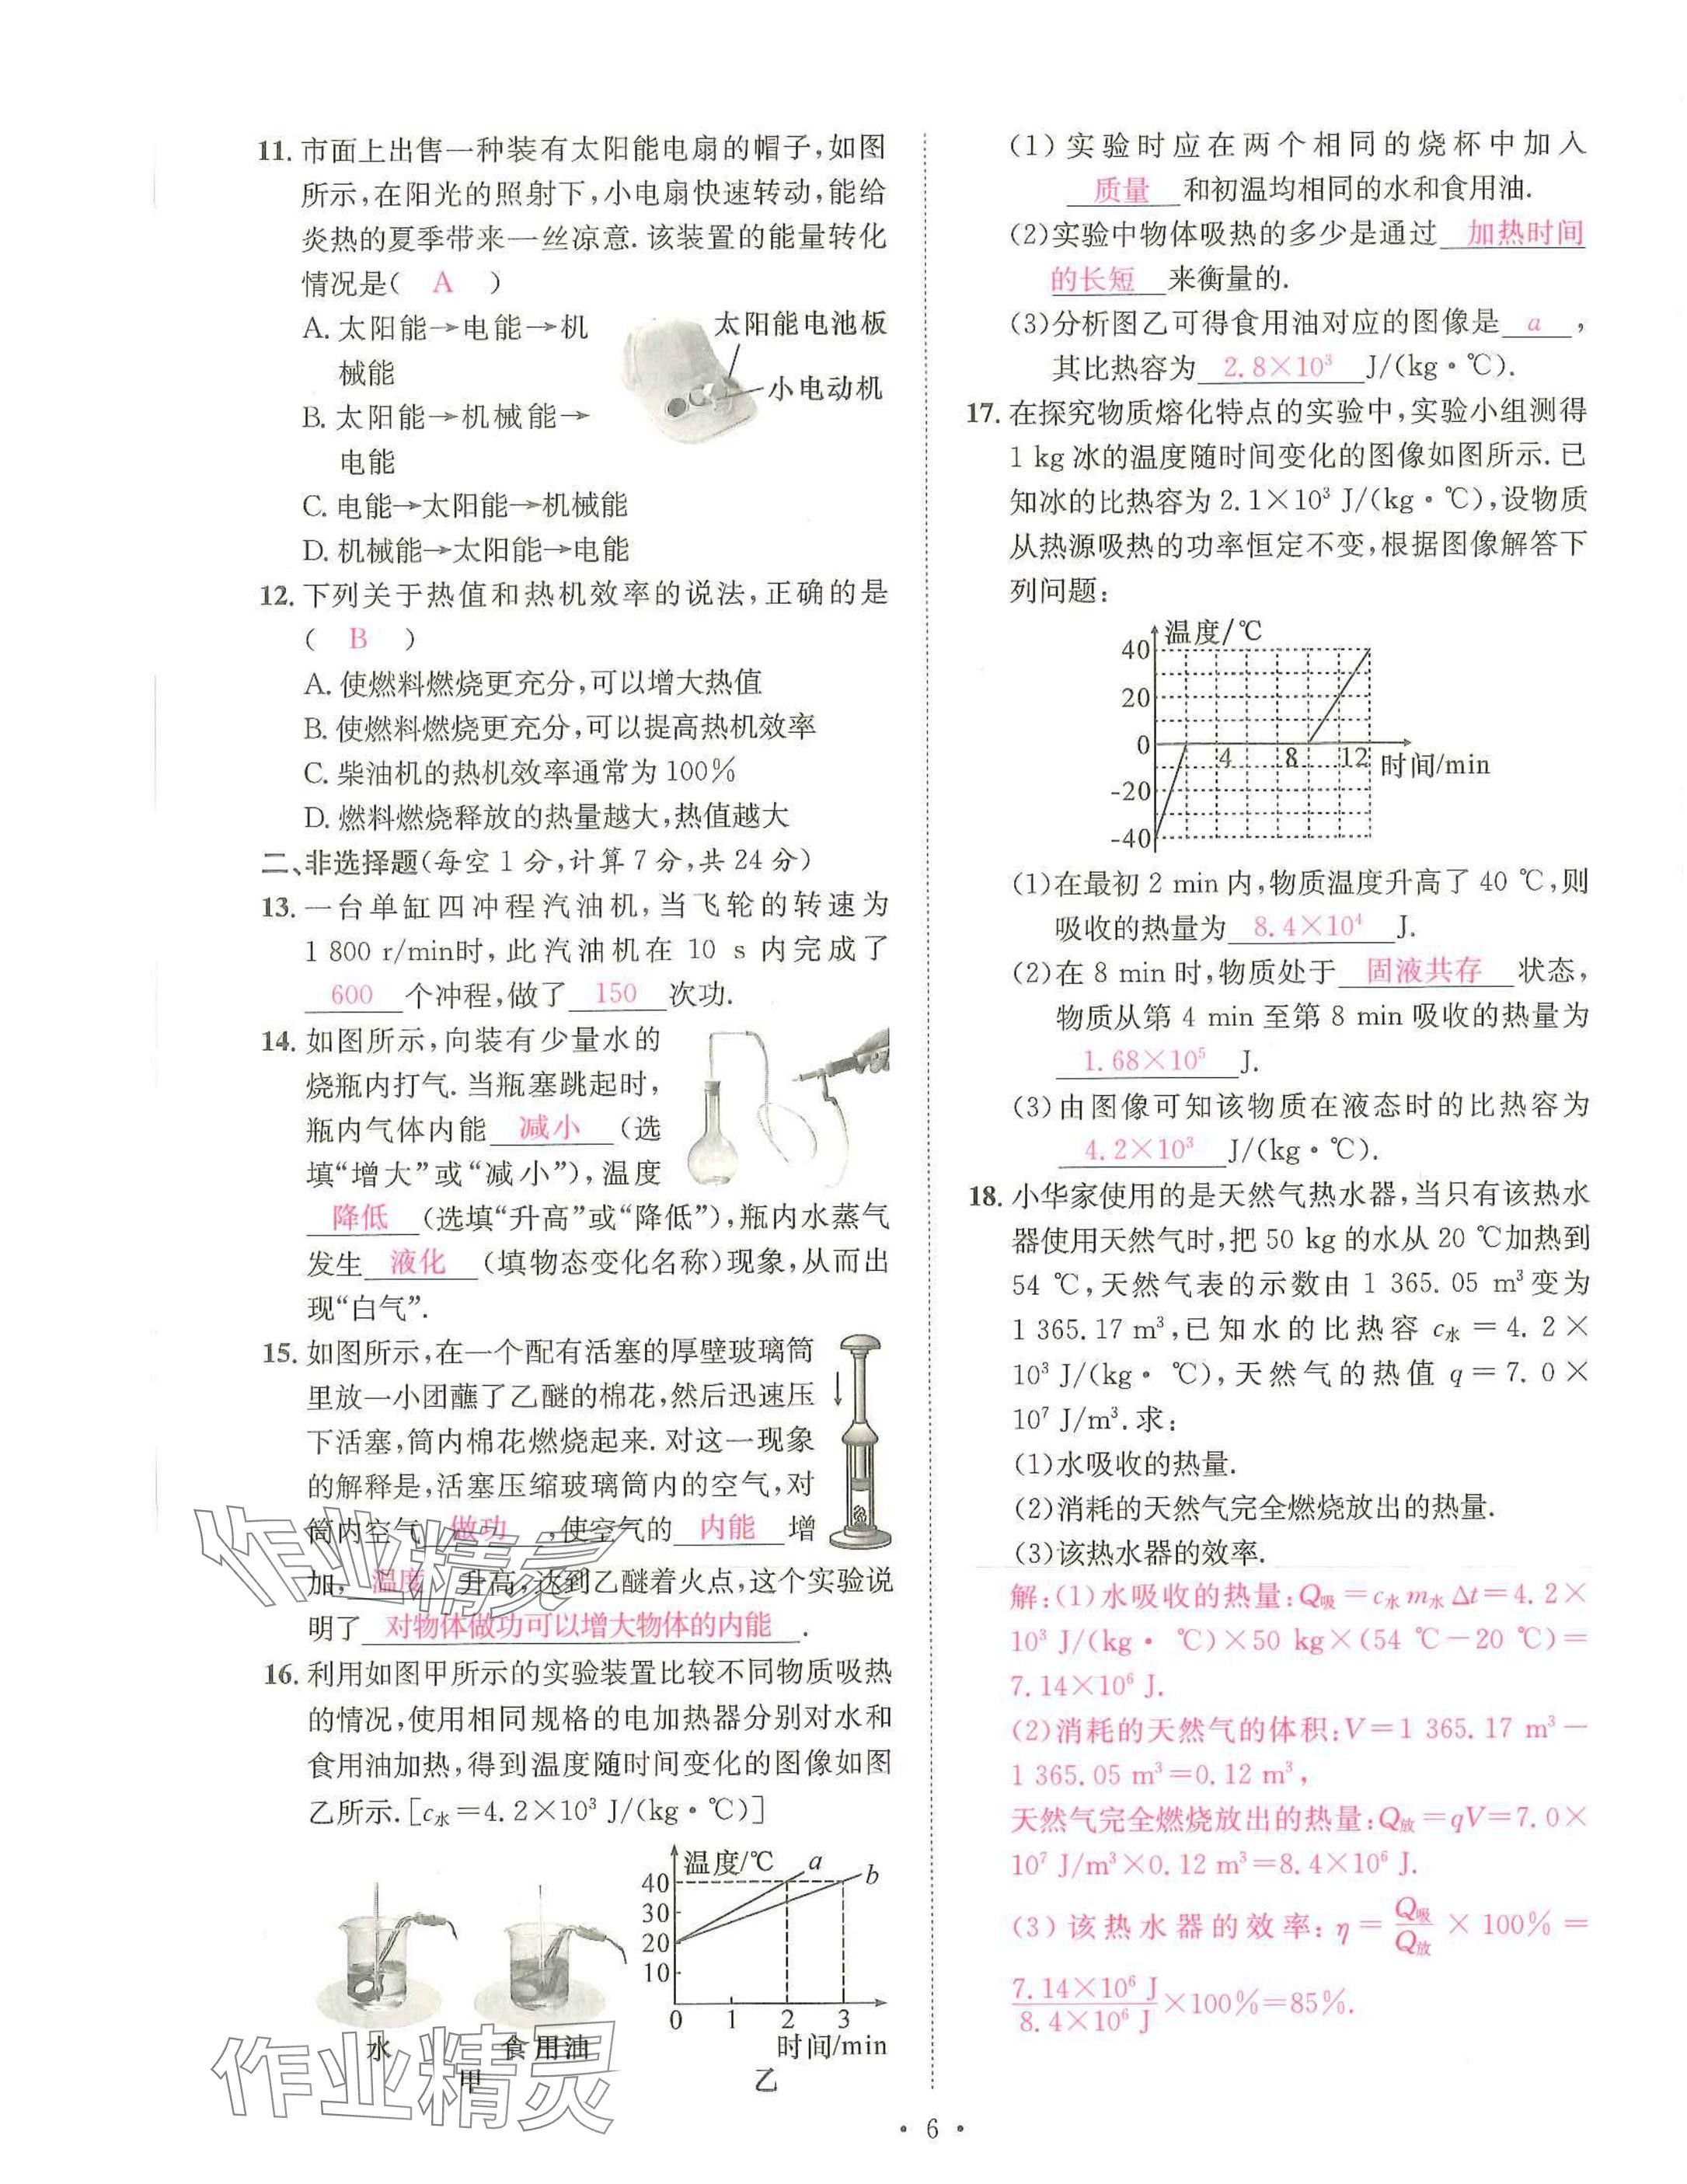 11. 市面上出售一种装有太阳能电扇的帽子,如图
所示,在阳光的照射下,小电扇快速转动,能给
炎热的夏季带来一丝凉意. 该装置的能量转化
情况是( A )
A. 太阳能→电能→机
械能
B. 太阳能→机械能→
电能
C. 电能→太阳能→机械能
D. 机械能→太阳能→电能
太阳能电池板
小电动机
12. 下列关于热值和热机效率的说法,正确的是
( B )
A. 使燃料燃烧更充分,可以增大热值
B. 使燃料燃烧更充分,可以提高热机效率
C. 柴油机的热机效率通常为100%
D. 燃料燃烧释放的热量越大,热值越大
二、非选择题(每空1分,计算7分,共24分)
13. 一台单缸四冲程汽油机,当飞轮的转速为
1 800 r/min时,此汽油机在 10 s 内完成了
600 个冲程,做了 150 次功.
14. 如图所示,向装有少量水的
烧瓶内打气. 当瓶塞跳起时,
瓶内气体内能 减小 (选
填“增大”或“减小”),温度
降低 (选填“升高”或“降低”),瓶内水蒸气
发生 液化 (填物态变化名称)现象,从而出
现“白气”.
15. 如图所示,在一个配有活塞的厚壁玻璃筒
里放一小团蘸了乙醚的棉花,然后迅速压
下活塞,筒内棉花燃烧起来. 对这一现象
的解释是,活塞压缩玻璃筒内的空气,对
筒内空气 做功 ,使空气的 内能 增
加, 温度 升高,达到乙醚着火点,这个实验说
明了 对物体做功可以增大物体的内能 .
16. 利用如图甲所示的实验装置比较不同物质吸热
的情况,使用相同规格的电加热器分别对水和
食用油加热,得到温度随时间变化的图像如图
乙所示. [c水=4.2×10³ J/(kg·℃)]
水 食用油
甲
温度/℃ a b
40
30
20
10
0 1 2 3
时间/min
乙
(1)实验时应在两个相同的烧杯中加入
质量 和初温均相同的水和食用油.
(2)实验中物体吸热的多少是通过 加热时间
的长短 来衡量的.
(3)分析图乙可得食用油对应的图像是 a ,
其比热容为 2.8×10³ J/(kg·℃).
17. 在探究物质熔化特点的实验中,实验小组测得
1 kg 冰的温度随时间变化的图像如图所示. 已
知冰的比热容为 2.1×10³ J/(kg·℃),设物质
从热源吸热的功率恒定不变,根据图像解答下
列问题:
温度/℃
40
20
0 4 8 12 时间/min
-20
-40
(1)在最初 2 min 内,物质温度升高了 40 ℃,则
吸收的热量为 8.4×10⁴ J.
(2)在 8 min 时,物质处于 固液共存 状态,
物质从第 4 min 至第 8 min 吸收的热量为
1.68×10⁵ J.
(3)由图像可知该物质在液态时的比热容为
4.2×10³ J/(kg·℃).
18. 小华家使用的是天然气热水器,当只有该热水
器使用天然气时,把 50 kg 的水从 20 ℃加热到
54 ℃,天然气表的示数由 1 365.05 m³ 变为
1 365.17 m³,已知水的比热容 c水=4.2×
10³ J/(kg·℃),天然气的热值 q=7.0×
10⁷ J/m³.求:
(1)水吸收的热量.
(2)消耗的天然气完全燃烧放出的热量.
(3)该热水器的效率.
解:(1)水吸收的热量:Q吸=c水m水Δt=4.2×
10³ J/(kg·℃)×50 kg×(54 ℃-20 ℃)=
7.14×10⁶ J.
(2)消耗的天然气的体积:V=1 365.17 m³-
1 365.05 m³=0.12 m³,
天然气完全燃烧放出的热量:Q放=qV=7.0×
10⁷ J/m³×0.12 m³=8.4×10⁶ J.
(3)该热水器的效率:η=Q吸/Q放×100%=
7.14×10⁶ J/8.4×10⁶ J×100%=85%.
作业精灵
作业精灵
·6·